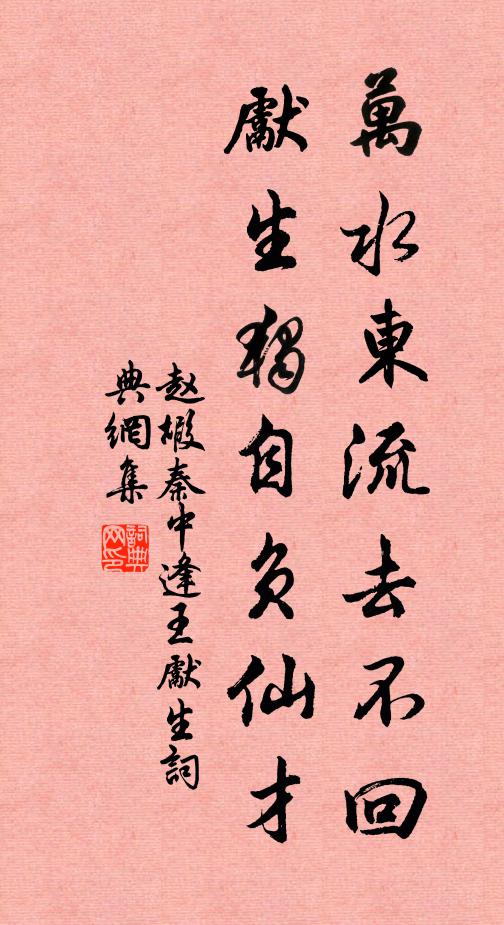 萬水東流去不回
獻生獨自負仙才
赵嘏秦中逢王獻生詞
典網集
詞典
网印